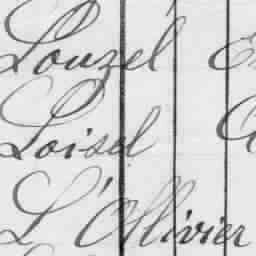 Louzel
Loisel
L'Ollivier